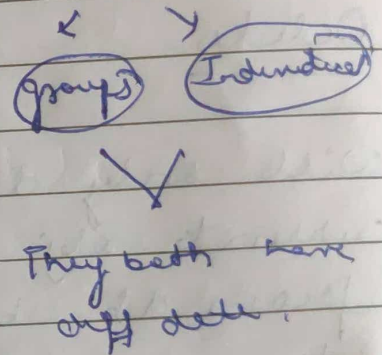 groups Individual
They both have
diff